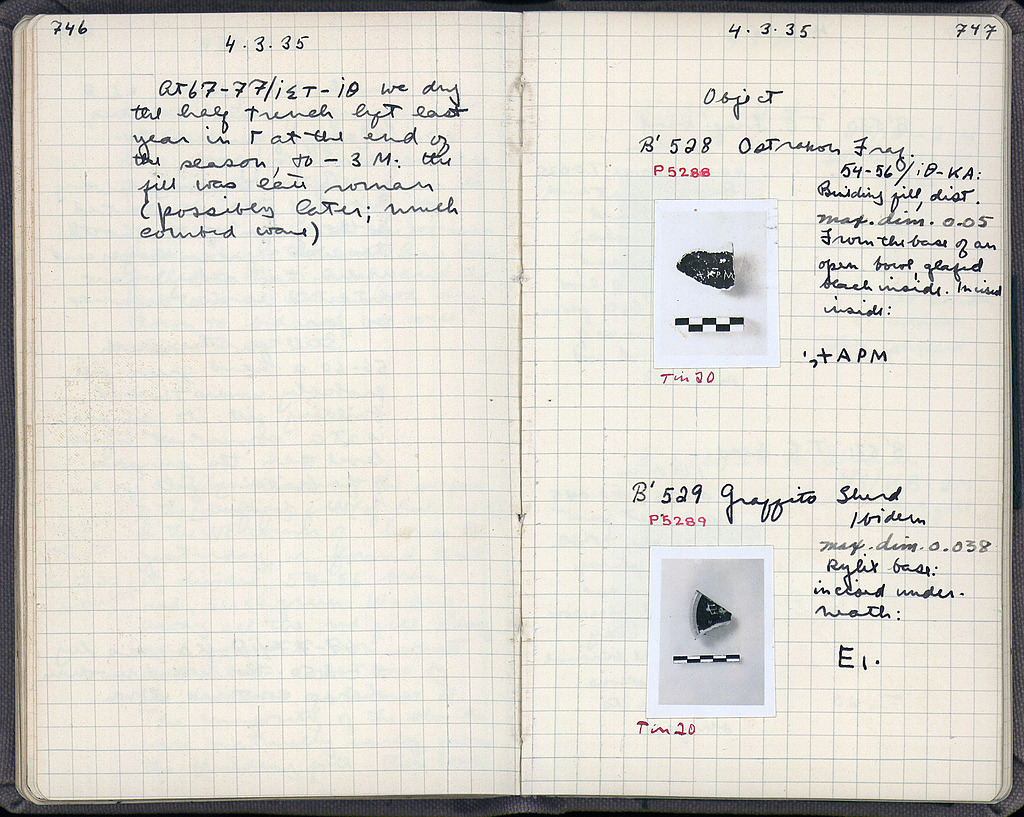 746
4.3.35
At 67-77/ιΣΤ-ιθ we dug
the half trench left last
year in Γ at the end of
the season, to -3 M. the
fill was late roman
(possibly later; much
combed ware)
4.3.35
747
Object
B' 528 Ostrakon Frag.
P5288
54-56/ιθ-ΚΑ:
Building fill, dist.
max. dim. 0.05
From the base of an
open bowl, glazed
black inside. Incised
inside:
+APM
Tin 20
B' 529 Graffito Sherd
P5289
Ibidem
max. dim. 0.038
Kylix base:
incised under-
neath:
E
Tin 20